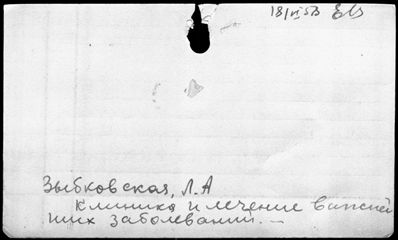 18/VI 53
Зыбковская, Л.А
Клиника и лечение важней
ших заболеваний. —